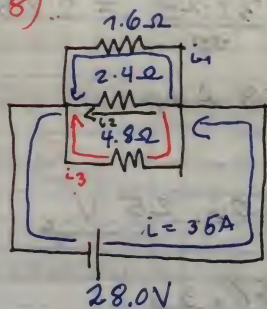 8)
1.6Ω
i1
2.4Ω
i2
4.8Ω
i3
i = 35A
28.0V